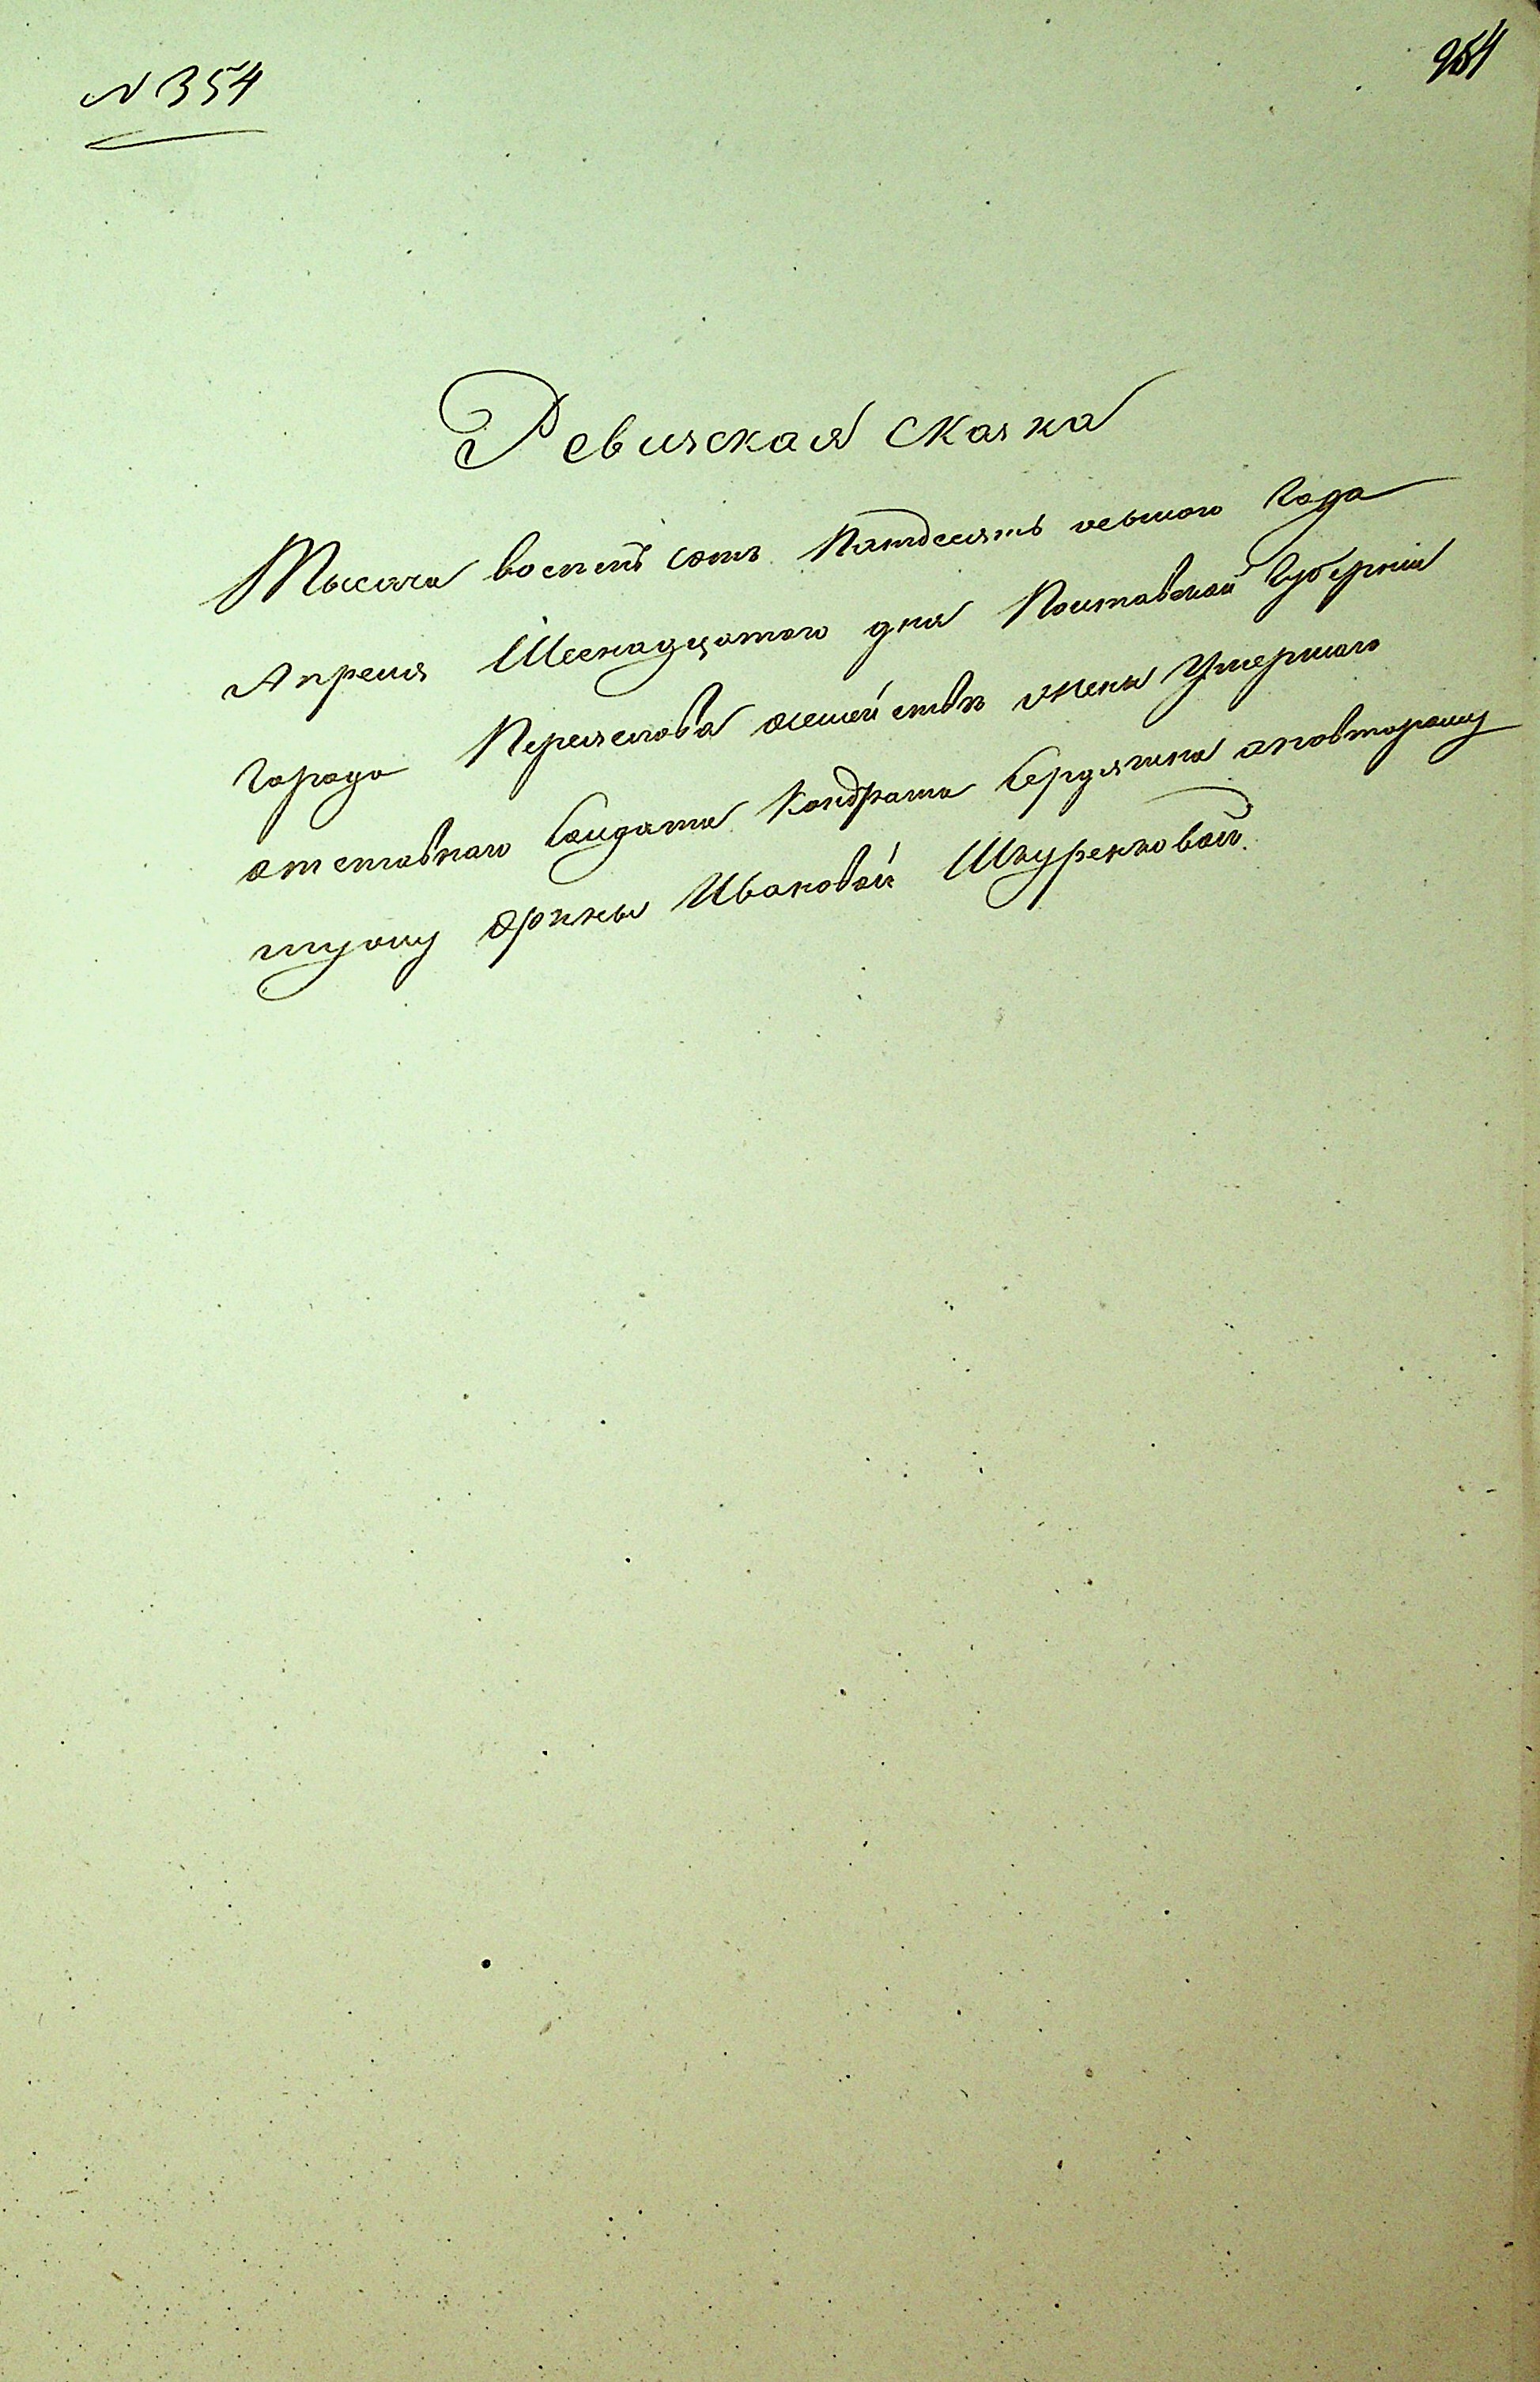 N 354
254
Ревизская сказка
Тысяча восемь сотъ Пятдесятъ осьмого Года
Апреля Шеснадцатого дня Полтавской Губернии
Города Переяслова семейства жены Умершаго
отставнаго Солдата Кондрата Сердюкна аповторому
мужу Орины Ивановой Шкуренковой.